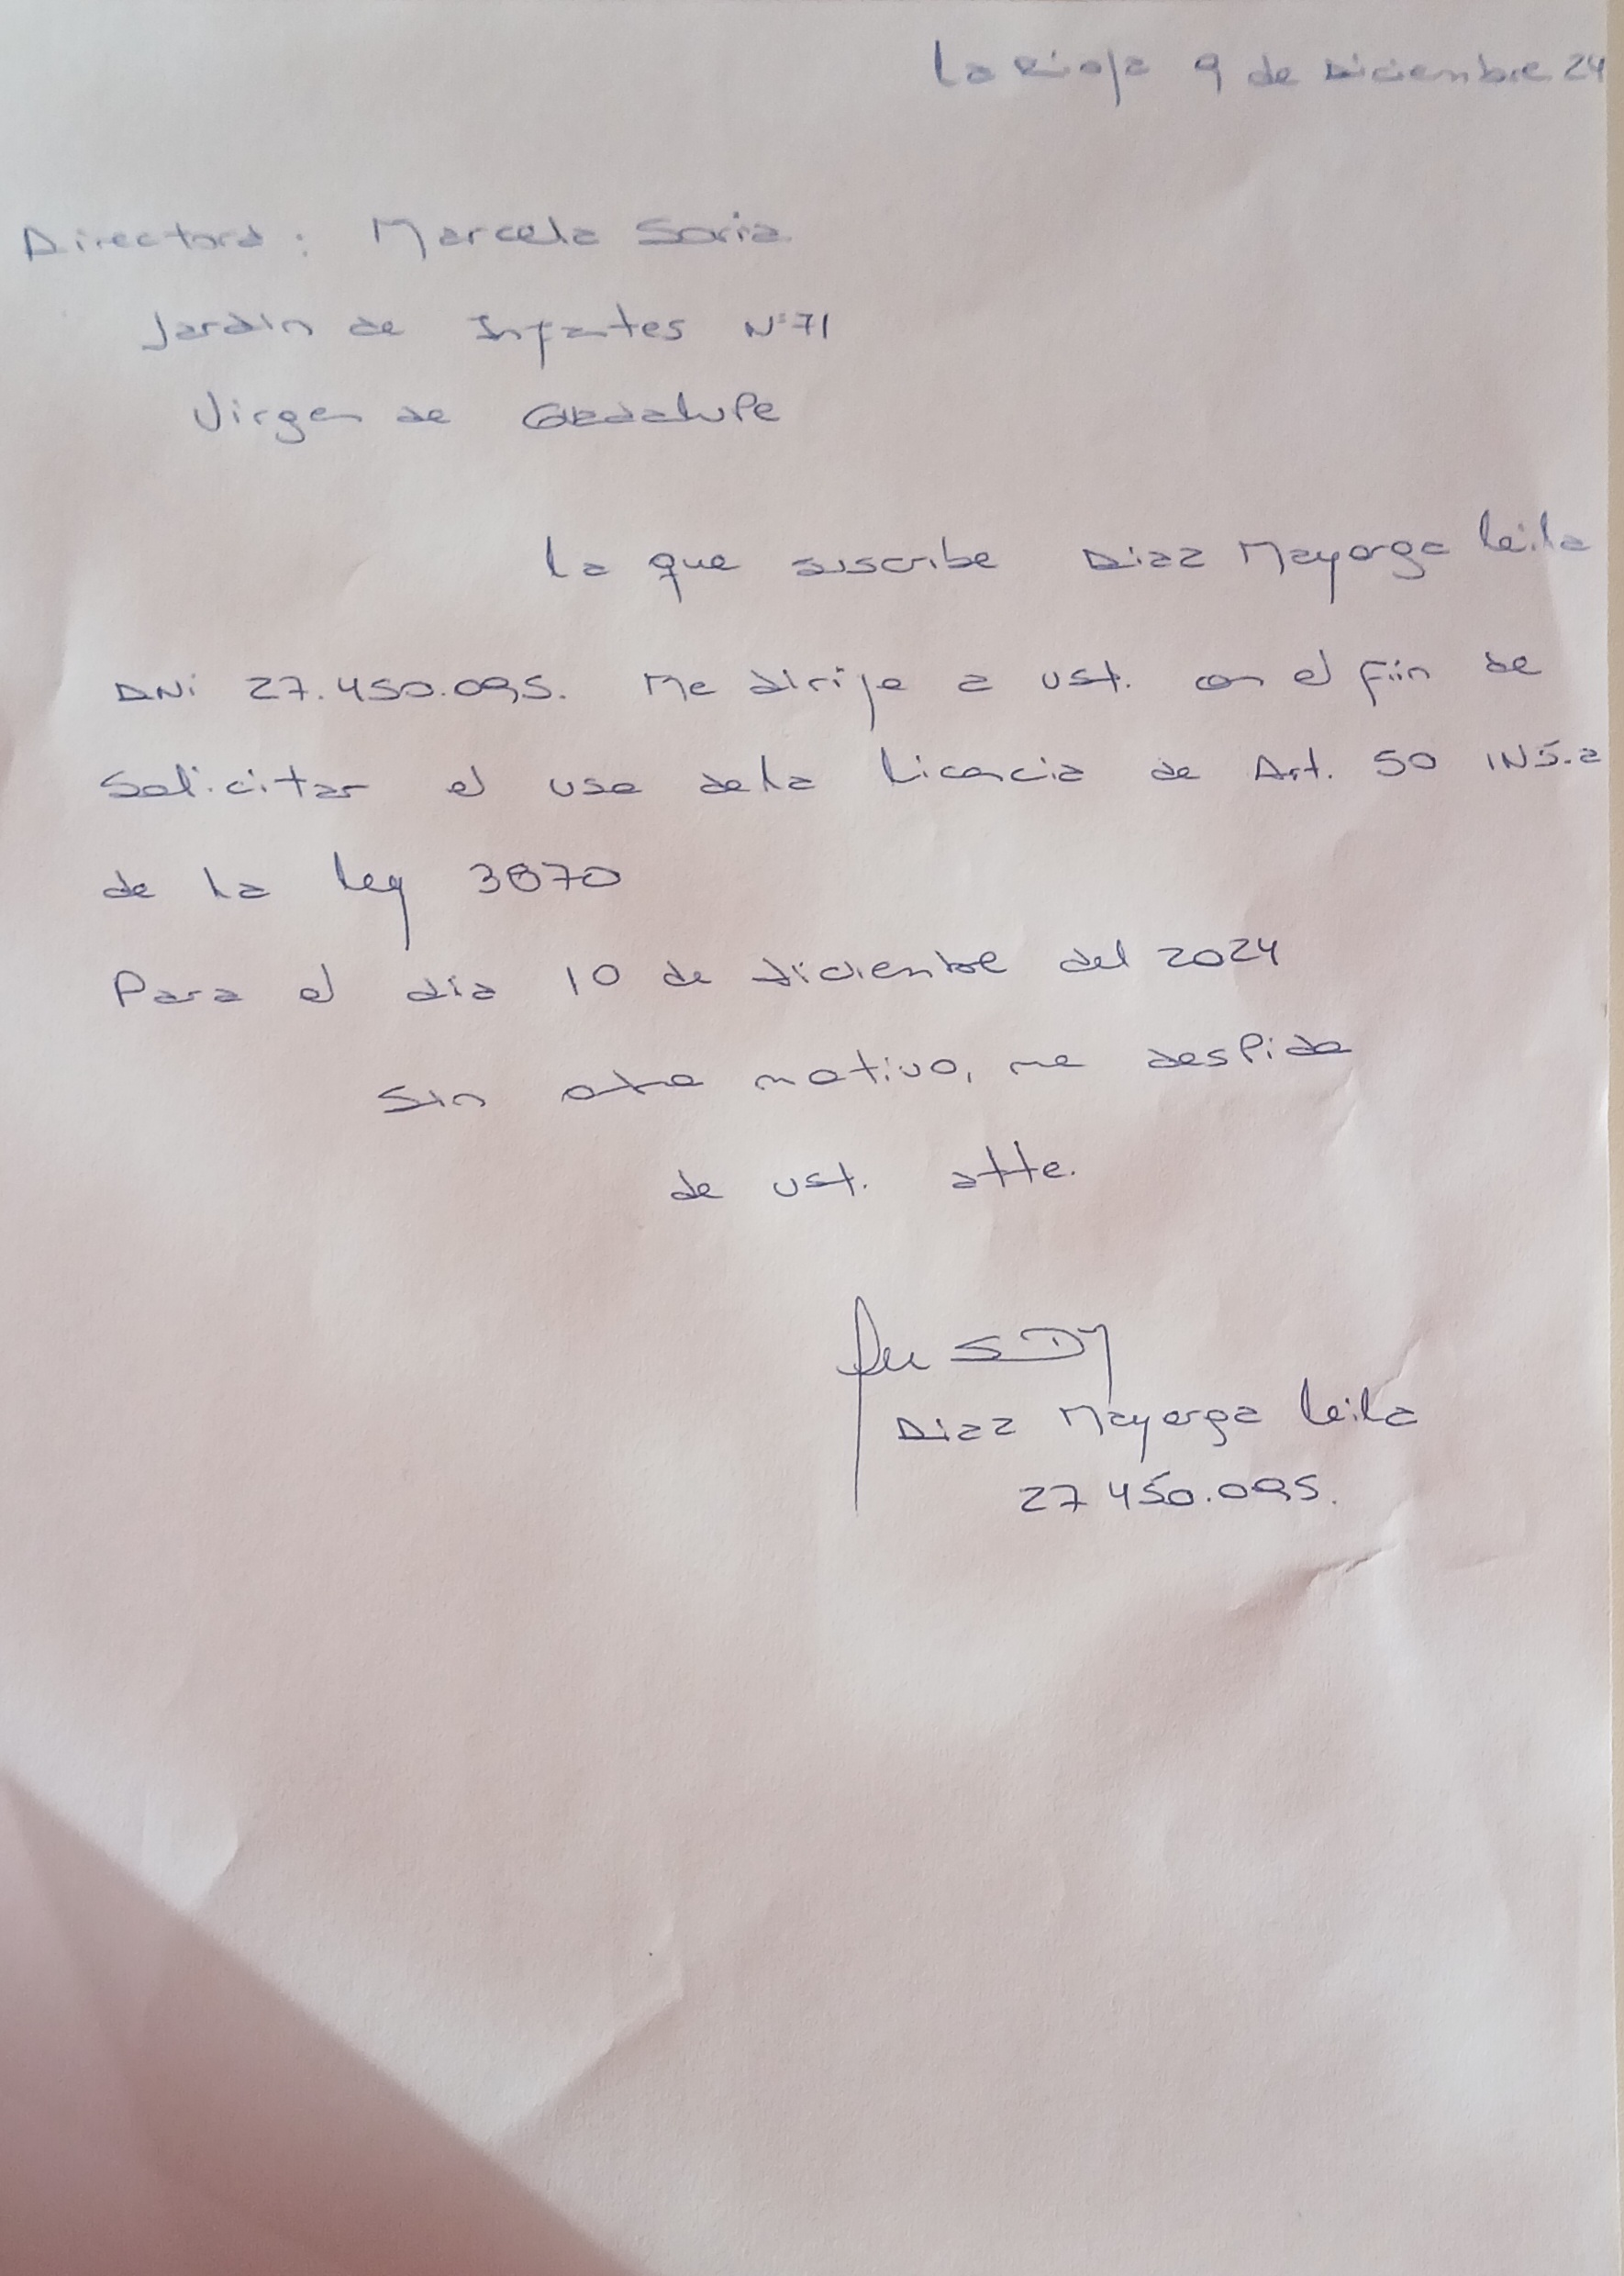 La Rioja 9 de Diciembre 24
Directora: Marcela Soria
Jardin de Infantes N°71
Virgen de Guadalupe
La que suscribe Diaz Mayorga Leila
DNi 27.450.095. Me dirijo a ust. con el fiin de
Solicitar el uso dela Licencia de Art. 50 INS.a
de la Ley 3870
Para el dia 10 de diciembre del 2024
Sin otro motivo, me despido
de ust. atte.
Diaz Mayorga Leila
27 450.095.